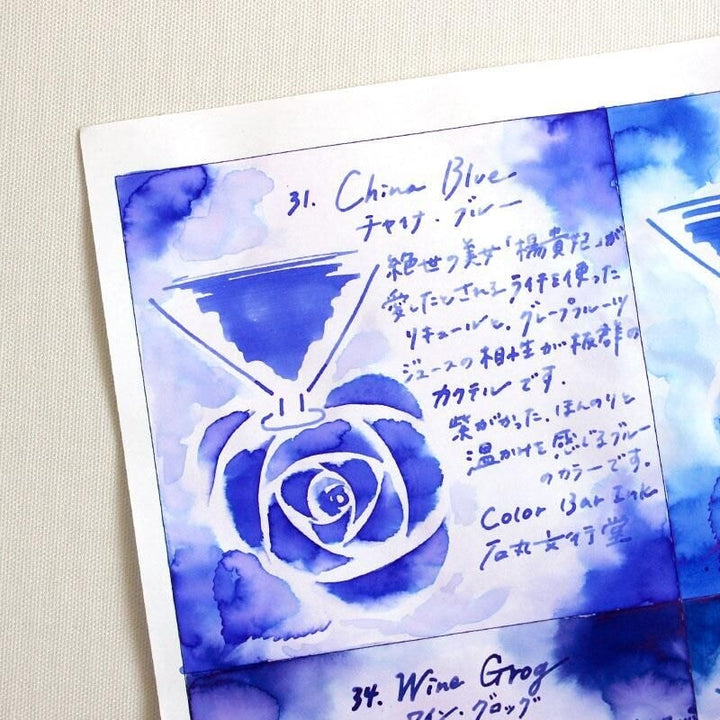 31. China Blue
チャイナ・ブルー
絶世の美女「楊貴妃」が
愛したとされるライチを使った
リキュールと、グレープフルーツ
ジュースの相性が抜群の
カクテルです。
紫がかった、ほんのりと
温かみを感じるブルー
のカラーです。
Color Bar Ink
石丸文行堂
34. Wine Grog
ワイン・グロッグ